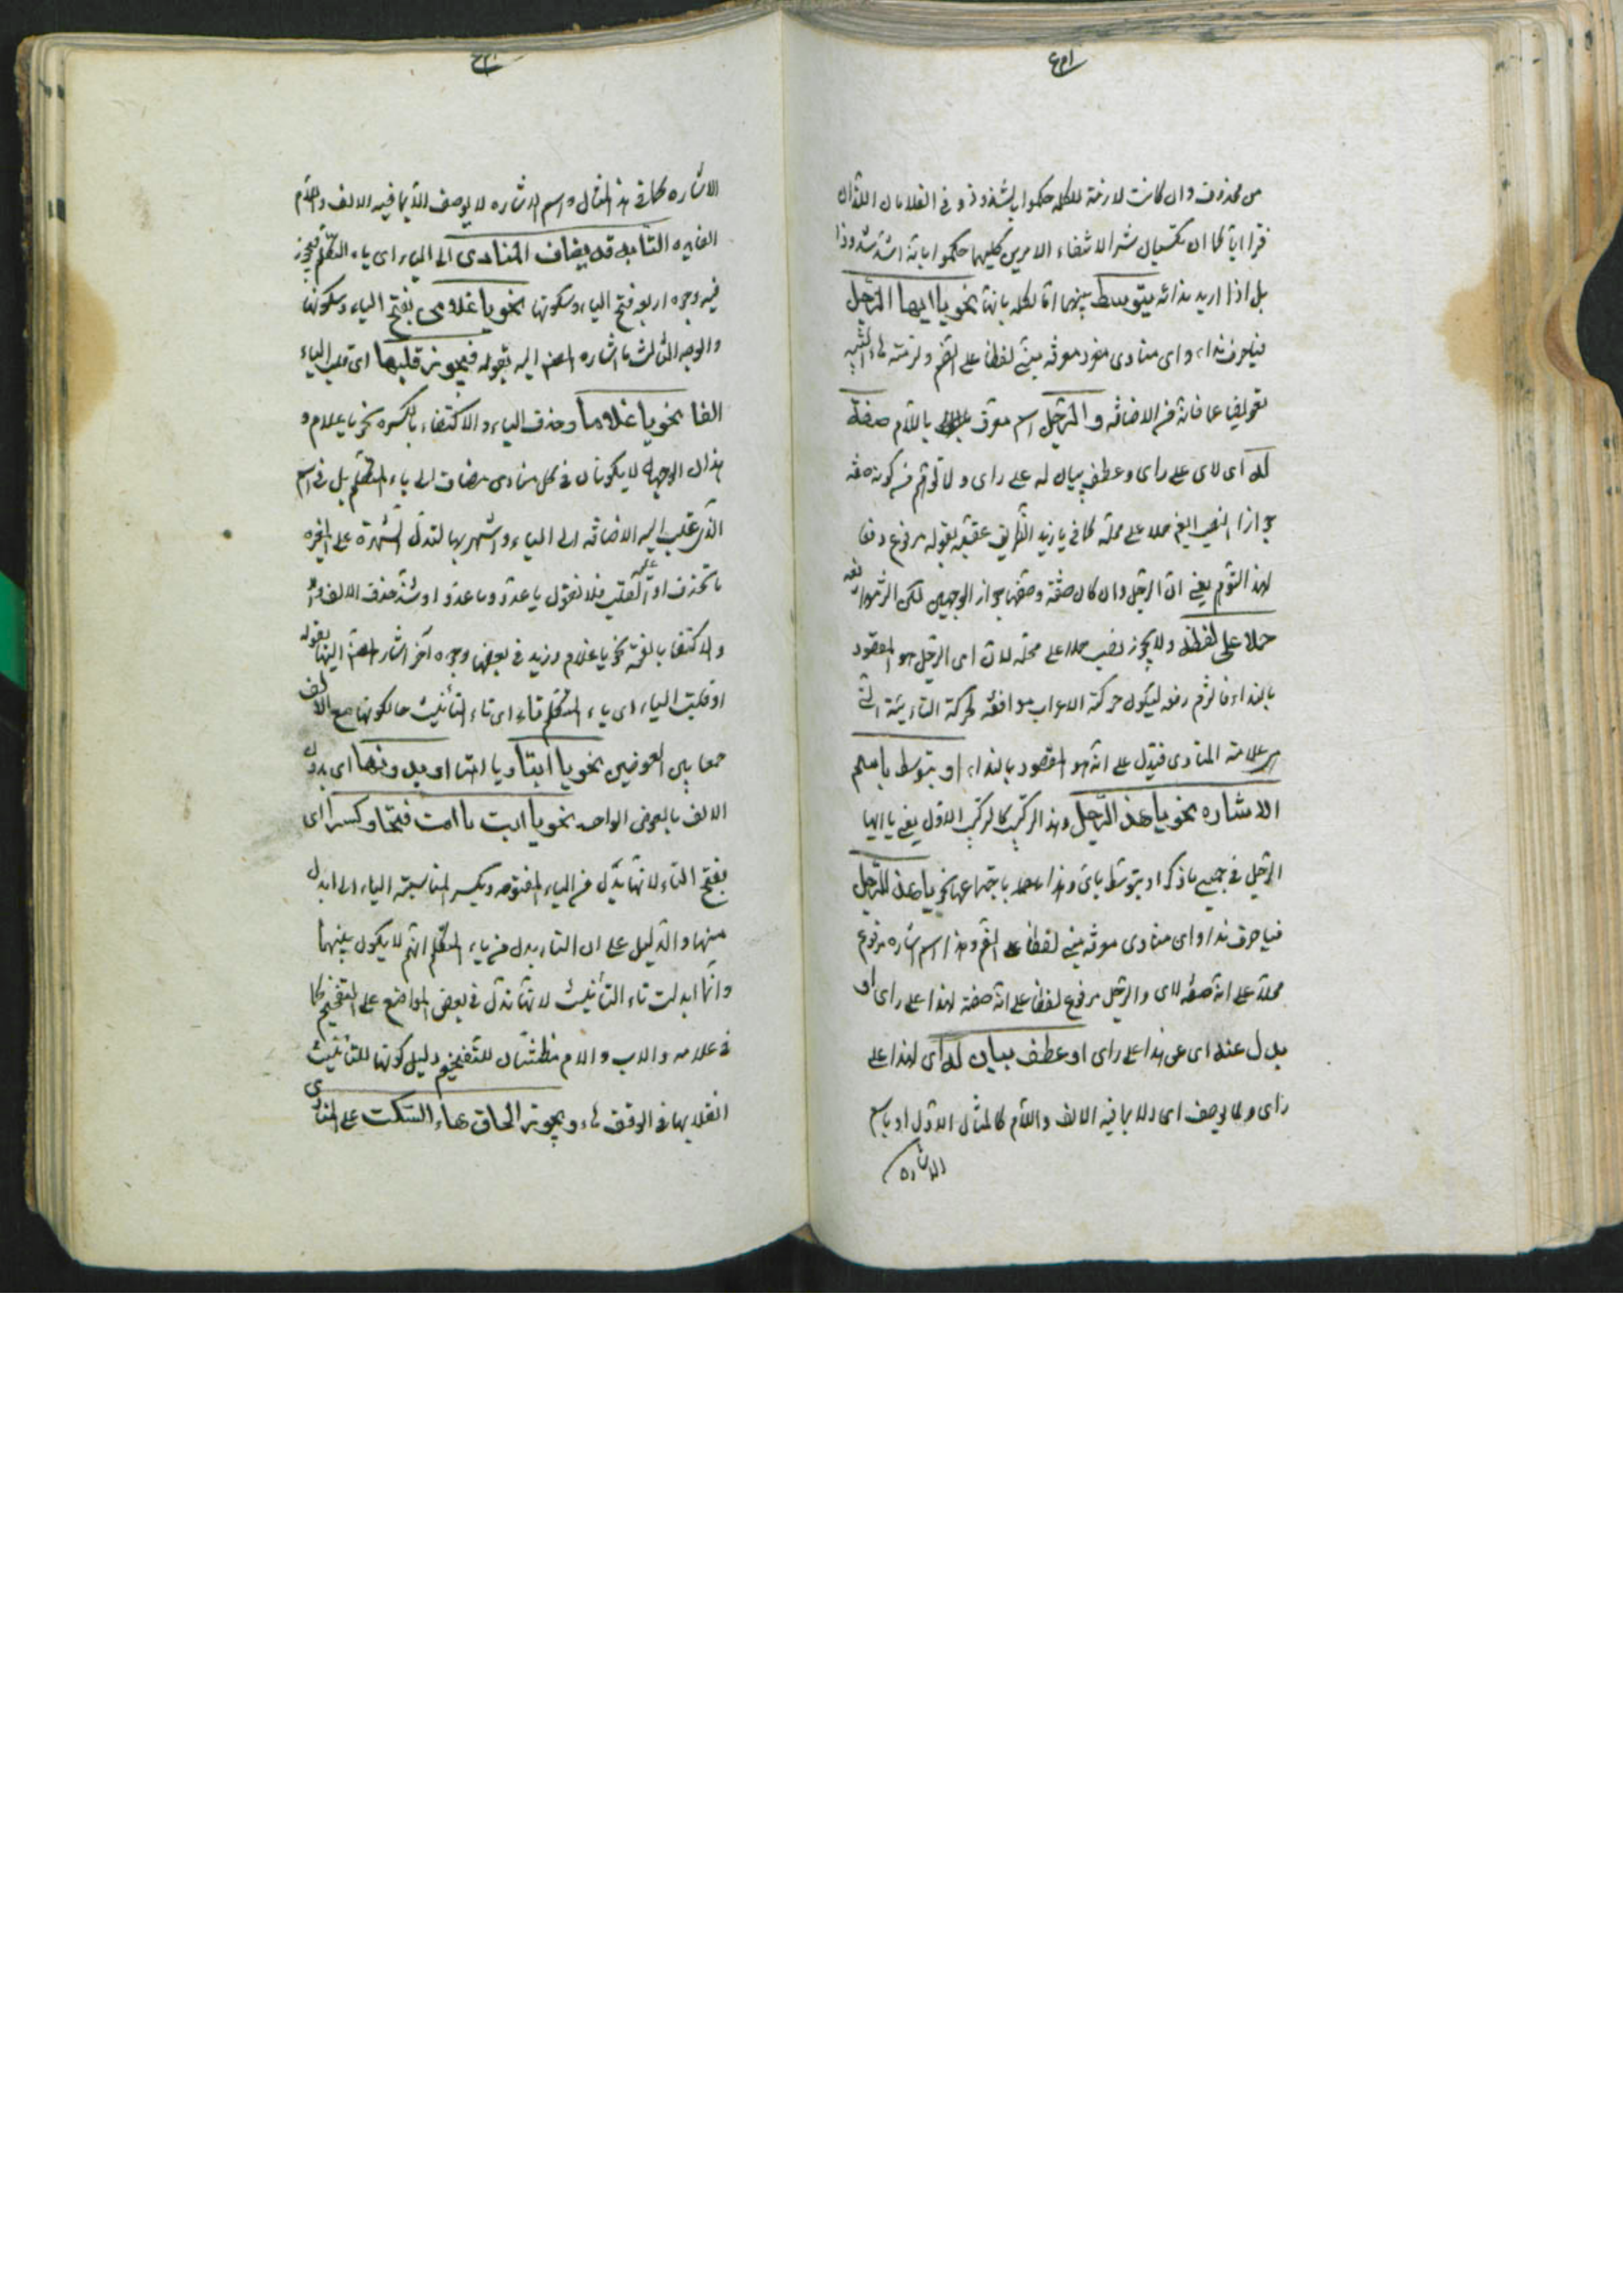 من محذوف وان كانت لازمة للكلمه حكموا بشذوذه وفى الغلامان اللذان
فرا اياكما ان تكسبان شرا لانتفاء الامرين كليهما حكموا بانه اشد شذوذا
بل اذا اريد نداءه يتوسط بينهما اما لكله بانها نحو يا ايها الرجل
فيا حرف نداء واى منادى مفرد معرفه مبنى لفظا على الضم ولزمته هاء التنبيه
تعويضا عما فاته من الاضافه والرجل اسم معرف باللام صفة
له اى لاى على راى وعطف بيان له على راى ولما توهم من كونه صفه
جواز النصب ايضا حملا على محله كما فى يا زيد الظريف عقبه بقوله مرفوع دفعا
لهذا التوهم يعنى ان الرجل وان كان صفة وحقها جواز الوجهين لكن التزموا رفعه
حملا على لفظه ولا يجوز نصب حملا على محله لان اى الرجل هو المقصود
بالنداء فالتزم رفعه ليكون حركته الاعراب موافقه لحركة البنائية التى
هى علامة المنادى فتدل على انه هو المقصود بالنداء او بتوسط باسم
الاشاره نحو يا هذا الرجل وهذا التركيب كالتركيب الاول يعنى يا ايها
الرجل فى جميع ما ذكر او بتوسط باى وهذا باجتماعهما نحو يا ايهذا الرجل
فيا حرف نداء واى منادى معرفه مبنى لفظا على الضم وهذا اسم اشاره مرفوع
محلا على انه صفه لاى والرجل مرفوع لفظا على انه صفة لهذا على راى او
بدل عنه اى عن هذا على راى او عطف بيان له اى لهذا على
راى ولا يوصف اى الا بما فيه الالف واللام كالمثال الاول او باسم
الاشاره
الاشاره كما فى هذا المثال واسم الاشاره لا يوصف الا بما فيه الالف واللام
الفايده الثانيه قد يضاف المنادى الى الياء اى ياء المتكلم فيجوز
فيه وجوه اربعه فتح الياء وسكونها نحو يا غلامى بفتح الياء وسكونها
والوجه الثالث ما اشاره المصنف اليه بقوله فيجوز قلبها اى قلب الياء
الفا نحو يا غلاما وحذف الياء والاكتفاء بالكسره نحو يا غلام و
هذان الوجهان لا يكونان فى كل منادى مضاف الى ياء المتكلم بل فى اسم
الذى غلب عليه الاضافه الى الياء واشتهر بها لتدل الشهرة على المغيره
بالحذف او القلب فلا تقول يا عدو ويا عدوا وشذ حذف الالف
والاكتفا بالفتحه نحو يا غلام وزيد فى بعضها وجوه آخر اشار المصنف اليها بقوله
او قلبت الياء اى ياء المتكلم تاء اى تاء التأنيث حالكونها مع الالف
جمعا بين العوضين نحو يا ابتا ويا امتا او بدونها اى بدون
الالف بالعوض الواحد نحو يا ابت يا امت فتحا وكسرا اى
بفتح التاء لانها بدل من الياء المفتوحه وبكسر لمناسبته الياء الى ابدل
منها والدليل على ان التاء بدل من ياء المتكلم انهم لا يكون بينهما
وانما ابدلت تاء التأنيث لانها تدل فى بعض المواضع على التفخيم كما
فى علامه والاب والام مظنتان للتفخيم ودليل كونها للتأنيث
انقلابها فى الوقف هاء ويجوز الحاق هاء السكت على المنادى